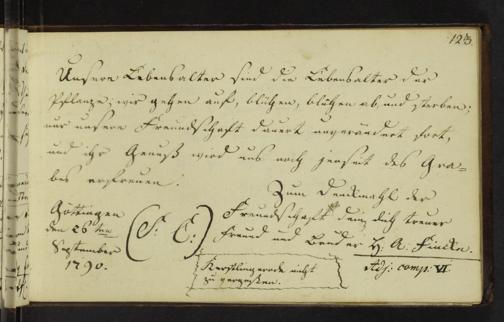 123.
Unsere Lebensalter sind die Lebensalter der
Pflanze; wir gehen auf, blühen, blühen ab, und sterben;
nur unsere Freundschaft dauert unverändert fort,
und ihr Genuß wird uns noch jenseit des Gra-
bes erfreuen.
Zum Denkmahl der
Freundschaft dein dich treuer
Freund und Bruder H. A.
Adj: comp: VI.
Göttingen
den 26ten
September
1790.
(S: E:)
Kerstlingerode nicht
zu vergessen.